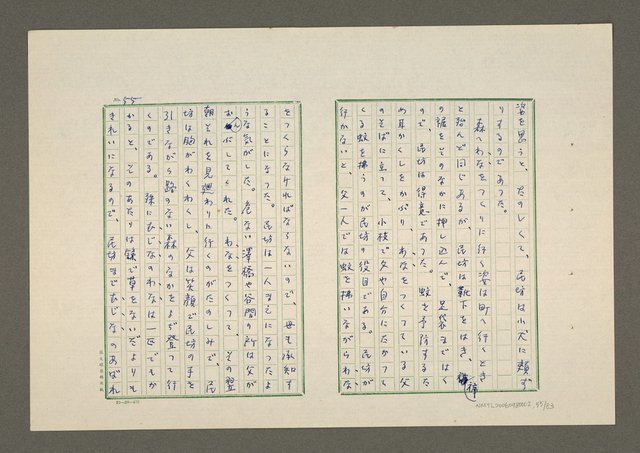 姿を思うと、たのしくて、民坊は小犬に頬ず
りするのであった。
森へわなをつくりに行く姿は町へ行くとき
と殆んど同じあるが、民坊は靴下をはき、
の裾をそのなかに押し込んで、足袋まではく
ので、民坊は得意であった。蚊を予防するた
め耳かくしをかぶり、わなをつくっている父
のそばに立って、小枝で父や自分にたかって
くる蚊を拂うのが民坊の役目である。民坊が
行かないと、父一人では蚊を拂いながらわな
をつくらなければならないので、母も承知す
ることになった。民坊は一人まえになったよ
うな気がした。危ない澤橋や谷間の所は父が
おんぶしてくれた。わなをつくって、その翌
朝それを見廻わりに行くのがたのしみで、民
坊は胸がわくわくし、父は笑顔で民坊の手を
引きながら路のない森のなかをよぢ登って行
くのである。殊にむじなのわなは一匹でもか
かると、そのあたりは鎌で草をないだよりも
きれいになるので、民坊までむじなのあばれ
No. 55
NMTL20060980002, 55/83